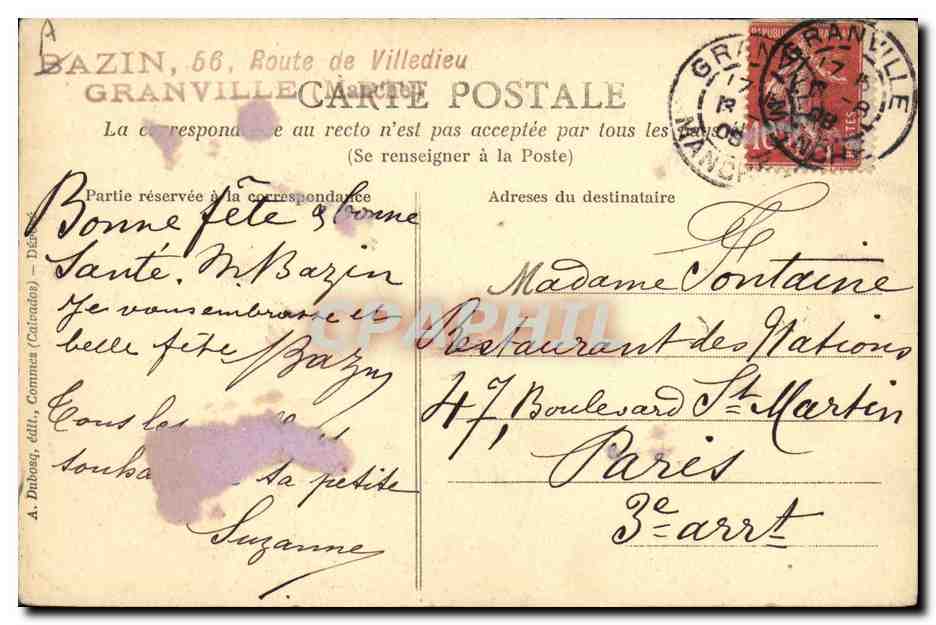 BAZIN, 56, Route de Villedieu
GRANVILLE (Manche)
CARTE POSTALE
La correspondance au recto n'est pas acceptée par tous les pays
(Se renseigner à la Poste)
GRANVILLE
MANCHE
GRANVILLE
MANCHE
10
POSTES
Partie réservée à la correspondance
Adresses du destinataire
Bonne fête & bonne
Santé. M Bazin
Je vous embrasse et
belle fête Bazin
Tous les
souha sa petite
Suzanne
Madame Fontaine
Restaurant des Nations
47, Boulevard St Martin
Paris
3e arrt
A. Dubosq, édit., Commes (Calvados) — Déposé
CPAPHIL